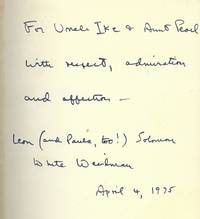 For Uncle Ike & Aunt Pearl
with respect, admiration
and affection —
Leon (and Paula, too!) Solomon
White Weidman
April 4, 1975